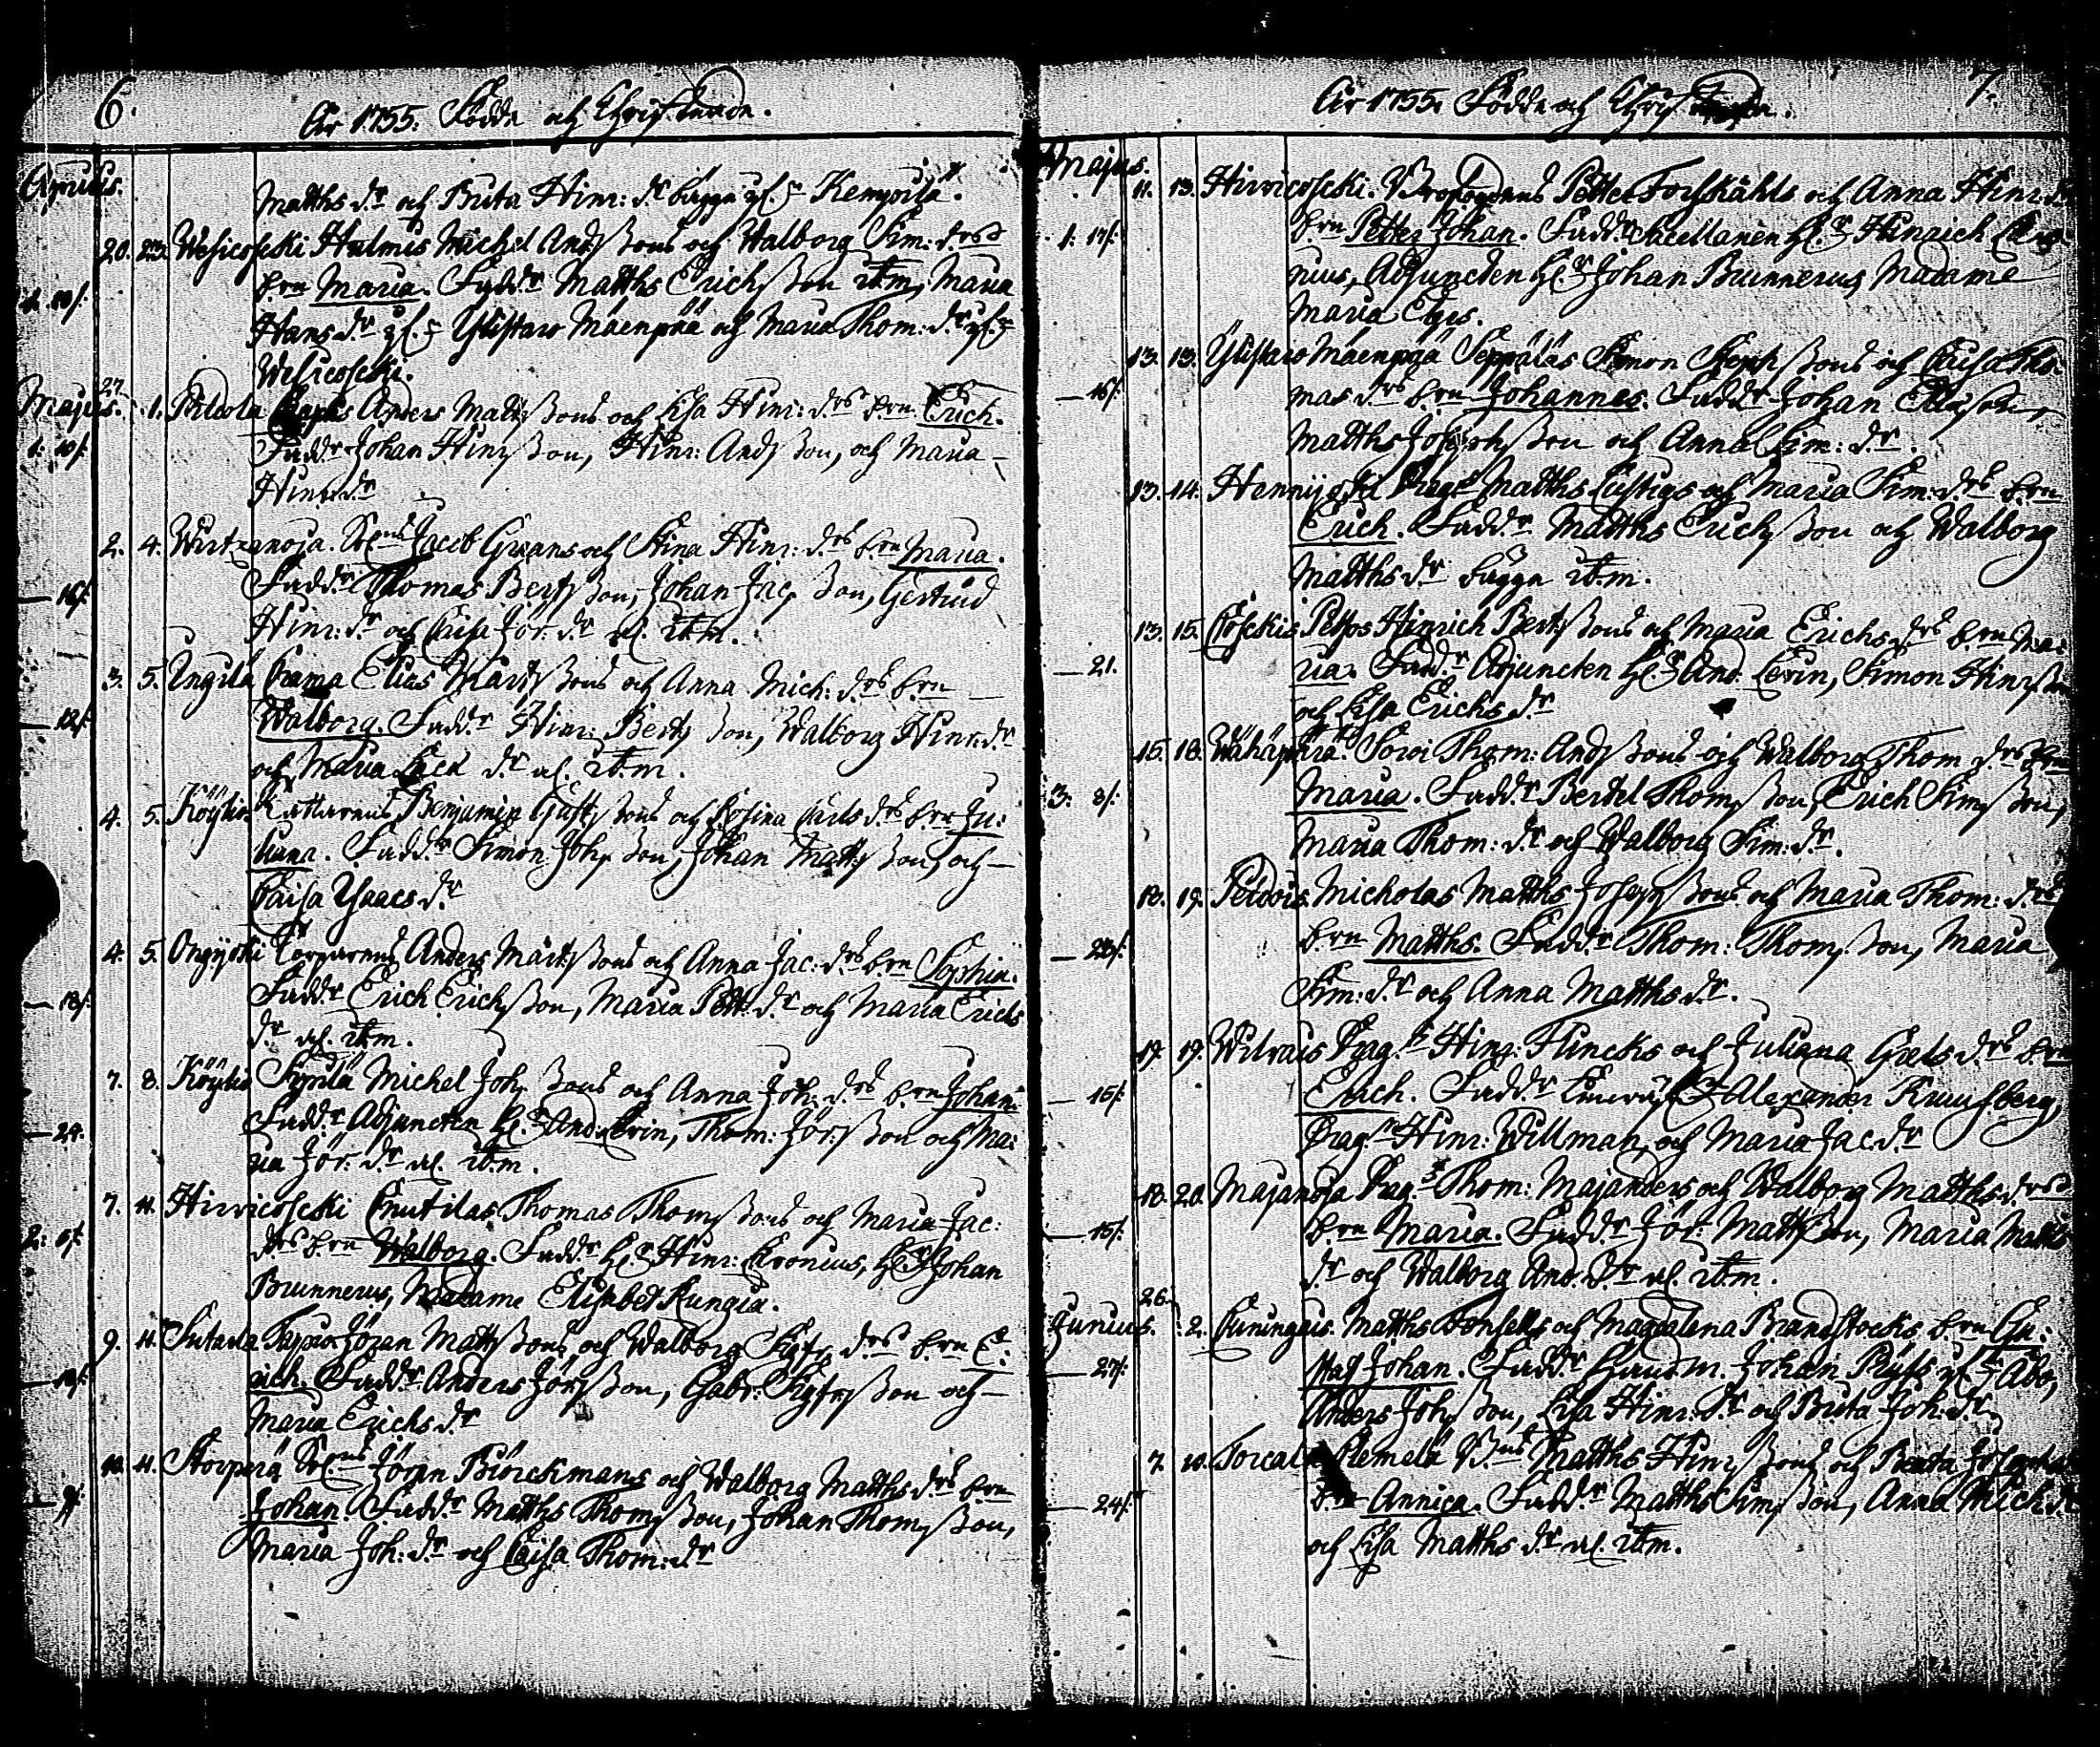 6.
År 1755. Födde och Christnade.
Aprilis.
Matths d:r och Brita Hinr: d:r bägge fr. Kempoila.
20. 23. Wesicoscki Halmis Michel Andsons och Walborg Sim: d:rs
1: 20/. b:rn Maria. Fadd:r Matths Erichsson ib:m, Maria
Hans d:r fr. Ylistaro Mäenpää och Maria Thom: d:r fr.
Wesicoscki.
Majus. 27. 1. Pilcola Anders Mattssons och Lisa Hinr: d:rs b:rn Erich.
1: 10/. Fadd:r Johan Hinrsson, Hinr: Andsson, och Maria
Hinr: d:r
2. 4. Wirtzanoja. Jacob Grans och Stina Hinr: d:rs b:rn Maria.
16/. Fadd:r Thomas Bertsson, Johan Jacsson, Gertrud
Hinr: d:r och Caisa Jör: d:r al. ib:m.
3. 5. Ungila Prama Elias Märtssons och Anna Mich: d:rs b:rn
12/. Walborg. Fadd:r Hinr: Bertsson, Walborg Hinr: d:r
och Maria d:r al. ib:m.
4. 5. Köyliö Benjamin Gustssons och Rosina Carls d:rs b:rn Ju:
liana. Fadd:r Simon Johsson, Johan Mattsson, och
Caisa Isaacs d:r
4. 5. Torparens Anders Märtssons och Anna Jac: d:rs b:rn Sophia.
18/. Fadd:r Erich Erichsson, Maria Pett: d:r och Maria Erichs
d:r al. ib:m.
7. 8. Köyliö Michel Johssons och Anna Joh: d:rs b:rn Johan.
24. Fadd:r Adjuncten H:r And: Levin, Thom: Jörsson och Ma:
ria Jör: d:r al. ib:m.
7. 11. Hirvicoscki Cnutilas Thomas Thomssons och Maria Jac:
2: d:rs b:rn Walborg. Fadd:r H:r Hinr: Cronius, H:r Johan
Brunnerus, Madame Elisabet Rungia.
9. 11. Sutarla Jöran Mattssons och Walborg d:rs b:rn E:
rich. Fadd:r Anders Jörsson, Gabr: och
Maria Erichs d:r
10. 11. Jöran Biörckmans och Walborg Matths d:rs b:rn
Johan. Fadd:r Matths Thomsson, Johan Thomsson,
Maria Joh: d:r och Caisa Thom: d:r
7.
År 1755. Födde och
Majus.
11. 13. Hirvicoscki. Petter Forskåhls och Anna Hinr: d:rs
1: 17/. b:rn Petter Johan. Fadd:r Sacellanen H:r Hinrich Cro:
nius, Adjuncten H:r Johan Brunnerus, Madame
Maria
13. 13. Ylistaro Mäenpää Seppäläs Simon och Caisa Tho:
16/. mas d:rs b:rn Johannes. Fadd:r Johan
Matths och Anna Sim: d:r.
13. 14. Hennijoki Drag: Matths Lustigs och Maria Sim: d:rs b:rn
Erich. Fadd:r Matths Erichsson och Walborg
Matths d:r bägge ib:m.
13. 15. Hinrich Bertssons och Maria Erichs d:rs b:rn Ma:
21. ria. Fadd:r Adjuncten H:r And: Levin, Simon Hinrsson
och Lisa Erichs d:r
15. 18. Wähäperä. Soroi Thom: Andssons och Walborg Thom d:rs b:rn
3: 8/. Maria. Fadd:r Bertel Thomsson, Erich Simsson,
Maria Thom: d:r och Walborg Sim: d:r.
18. 19. Peldois Micholas Matths Josephssons och Maria Thom: d:rs
23/. b:rn Matths. Fadd:r Thom: Thomsson, Maria
Sim: d:r och Anna Matths d:r.
17. 19. Wilvais Drag: Hinr: Flincks och Juliana d:rs b:rn
15/. Erich. Fadd:r Alexander
Drag:n Hinr: Willman, och Maria Jac: d:r
18. 20. Majanoja Drag: Thom: Majanders och Walborg Matths d:rs
15/. b:rn Maria. Fadd:r Jör: Mattsson, Maria Matths
d:r och Walborg And: d:r al. ib:m.
26.
Junius. 2. Cuningais. Matths Fonsells och Magdalena Brandstocks b:rn Gu:
27/. staf Johan. Fadd:r Johan fr. Åbo,
Anders Johsson, Lisa Hinr: d:r och Brita Joh: d:r
7. 10. Matths Hinrssons och
24/. b:rn Annica. Fadd:r Matths Simsson, Anna Mich: d:r
och Lisa Matths d:r al. ib:m.